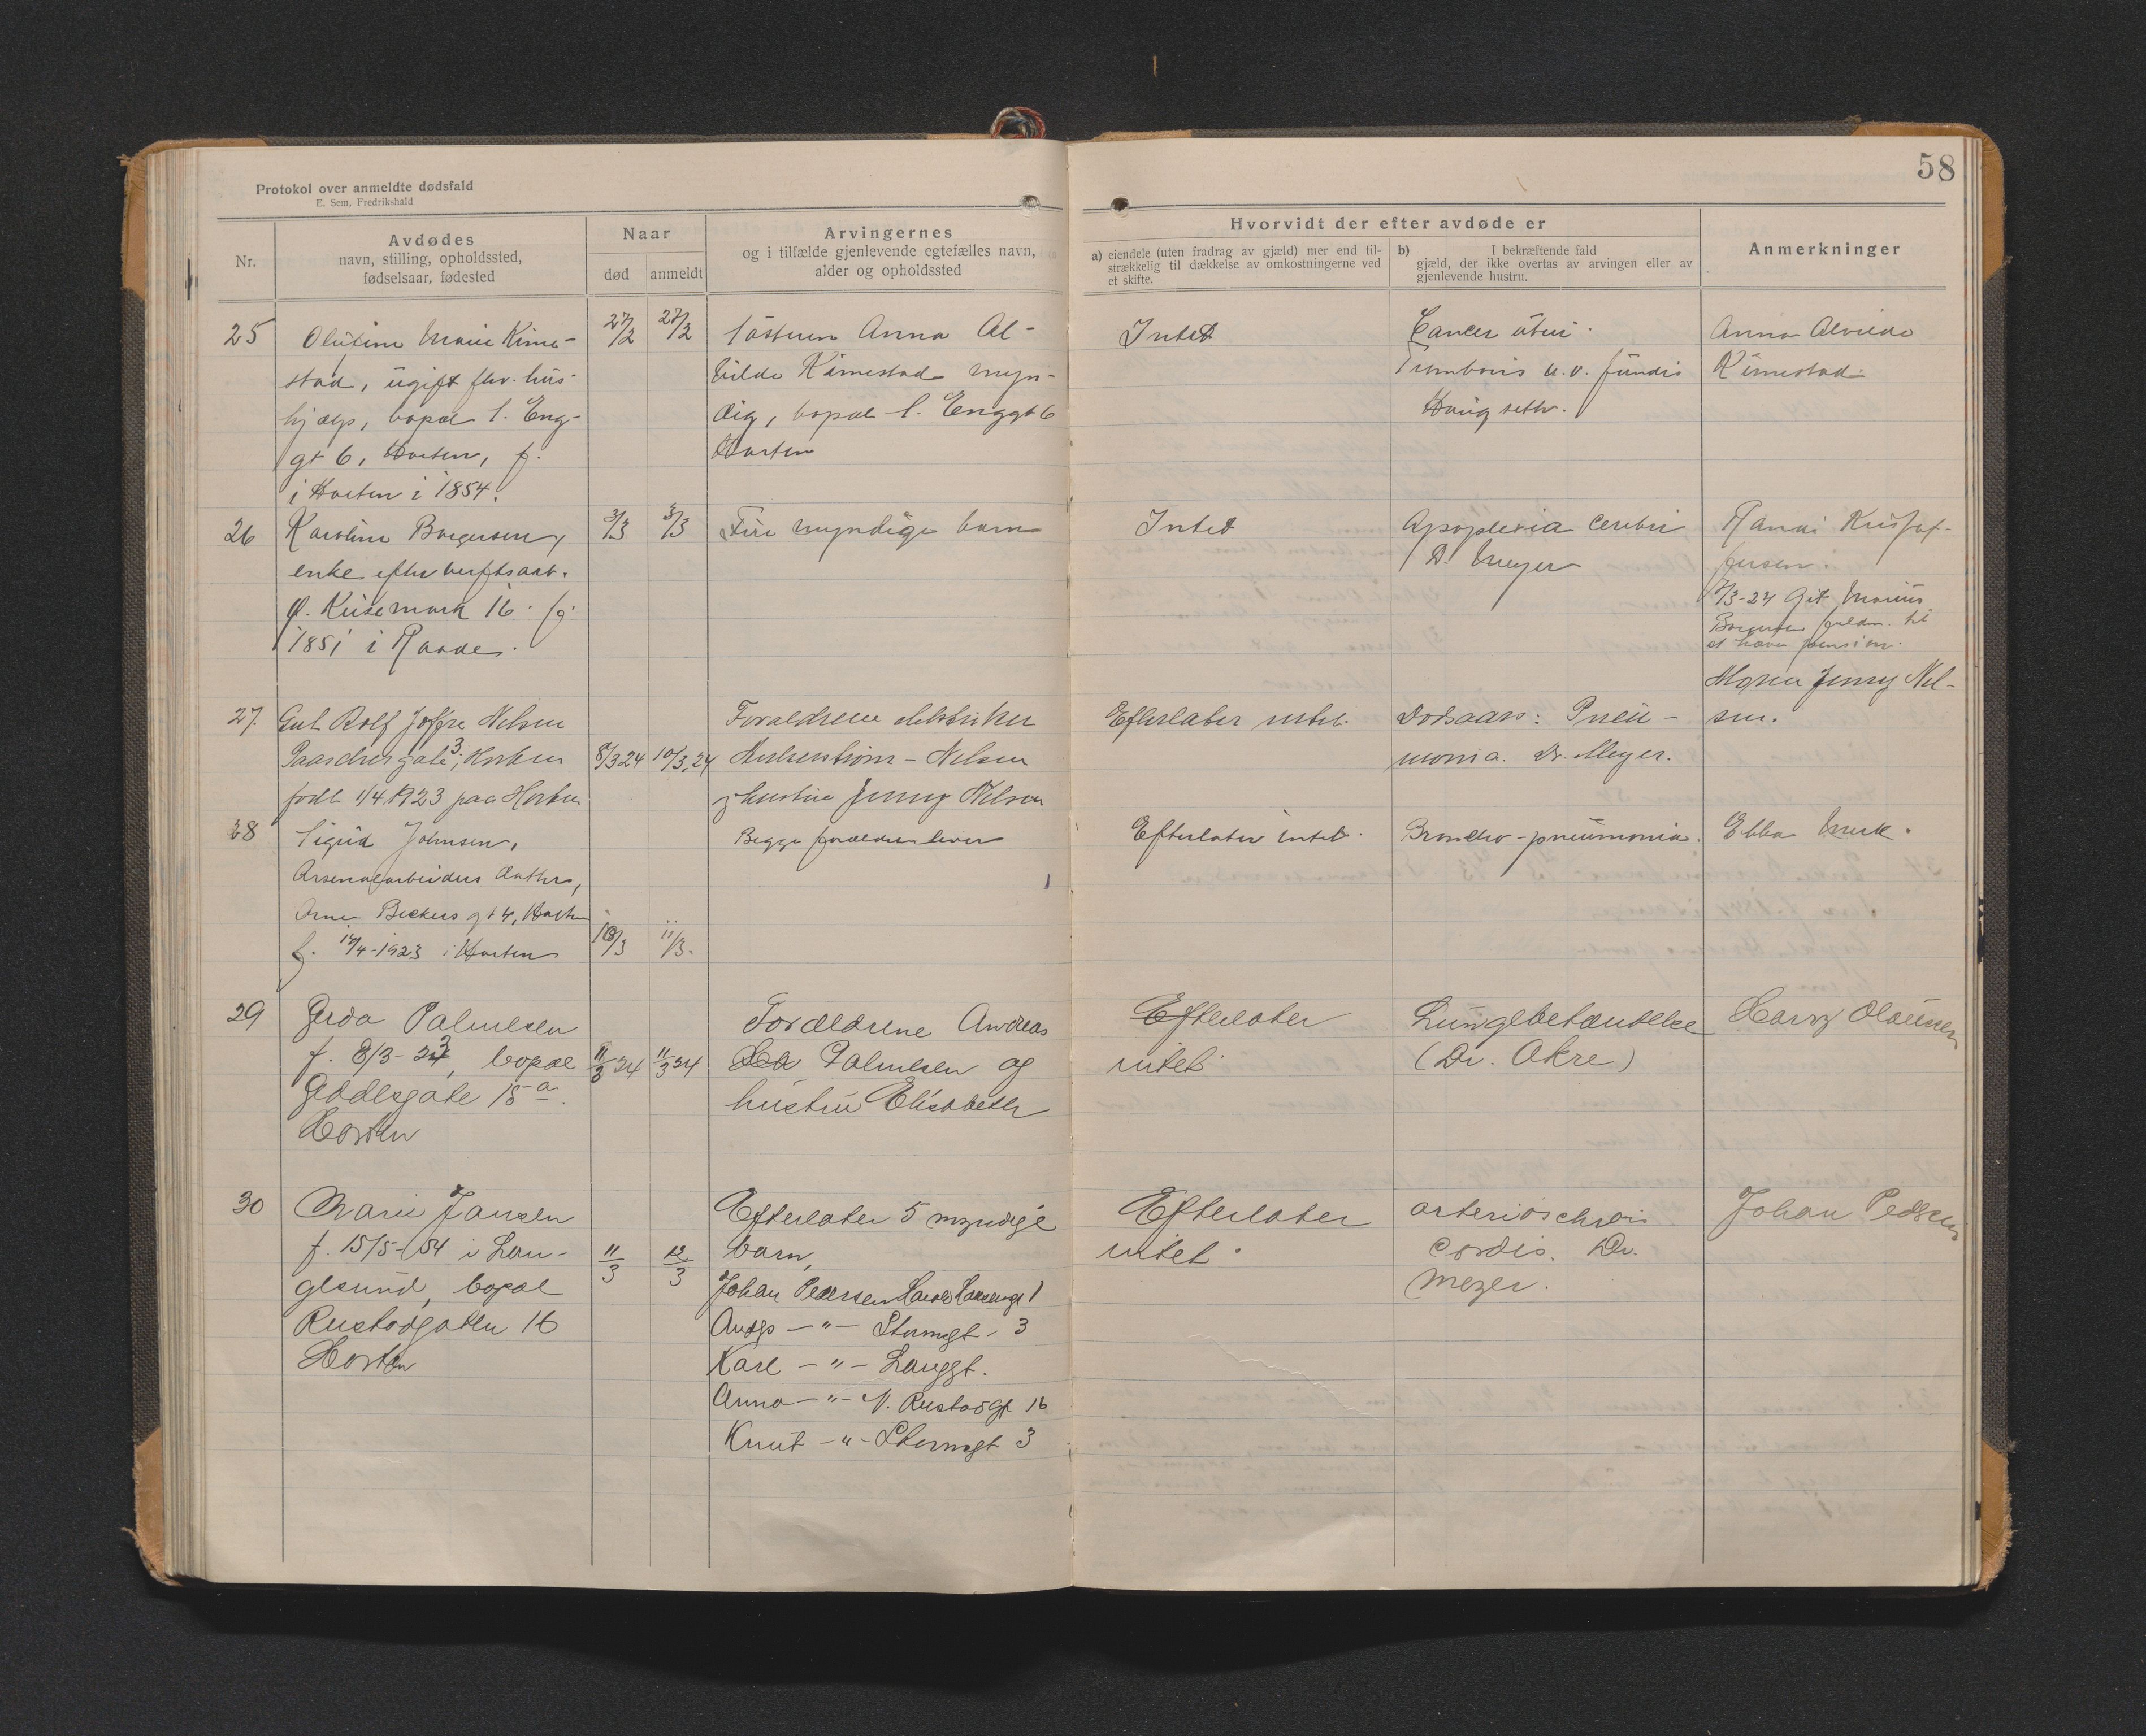 58
Protokol over anmeldte dødsfald
E. Sem, Fredrikshald
Nr.
Avdødes
navn, stilling, opholdssted,
fødselsaar, fødested
Naar
død
anmeldt
Arvingernes
og i tilfælde gjenlevende egtefælles navn,
alder og opholdssted
Hvorvidt der efter avdøde er
a) eiendele (uten fradrag av gjæld) mer end til-
strækkelig til dækkelse av omkostningerne ved
et skifte.
b) I bekræftende fald
gjæld, der ikke overtas av arvingen eller av
gjenlevende hustru.
Anmerkninger
25
Olufine Marie Kime-
stad, ugift fhv. hus-
hjælp, bopæl l. Eng-
gt 6, Horten, f.
i Horten i 1854.
27/2
27/2
Søsteren Anna Al-
vilde Kimestad myn-
dig, bopæl l. Enggt 6
Horten
Intet
Cancer uteri.
u. v. fundis
Anna Alvilde
Kimestad.
26
Karoline Borgersen,
enke efter verftsarb.
Ø. Keisemark 16. f.
1851 i Raade.
3/3
3/3
Fire myndige barn
Intet
Apoplexia cerebri
D. Meyer
Randi Kristof-
fersen.
7/3-24 Git Marius
Borgersen fuldm. til
at hæve pension.
27.
Gut Rolf Joffre Nilsen
Paaschesgate 3, Horten
født 1/4 1923 paa Horten
8/3 24
10/3, 24
Forældrene elektriker
- Nilsen
og hustru Jenny Nilsen
Efterlater intet.
Dødsaars: Pneu-
monia. Dr. Meyer.
Jenny Nil-
sen.
28
Sigrid Johnsen,
Arsenalarbeiders datter,
Arne Beckers gt 4, Horten
f. 14/4-1923 i Horten
10/3
11/3.
Begge forældrene lever
Efterlater intet.
Broncho-pneumonia.
Ebba Merk.
29
Gerda Palmesen
f. 8/3-23, bopæl
Geddesgate 15 a.
Horten
11/3 24
11/3 24
Forældrene Andreas
Palmesen og
hustru Elisabeth
Efterlater
intet.
Lungebetændelse
(Dr. Akre)
Harry Olaussen
30
Marie Jansen
f. 15/5-54 i Lan-
gesund, bopæl
Rustadgaten 16
Horten
11/3
12/3
Efterlater 5 myndige
barn,
Johan Pedersen 1
Andrs - " - Stormgt - 3
Karl - " - Langgt.
Anna - " - N. Rustadgt 16
Knut - " - Stormgt 3
Efterlater
intet.
arterioschrois
cordis. Dr.
Meyer.
Johan Pedersen